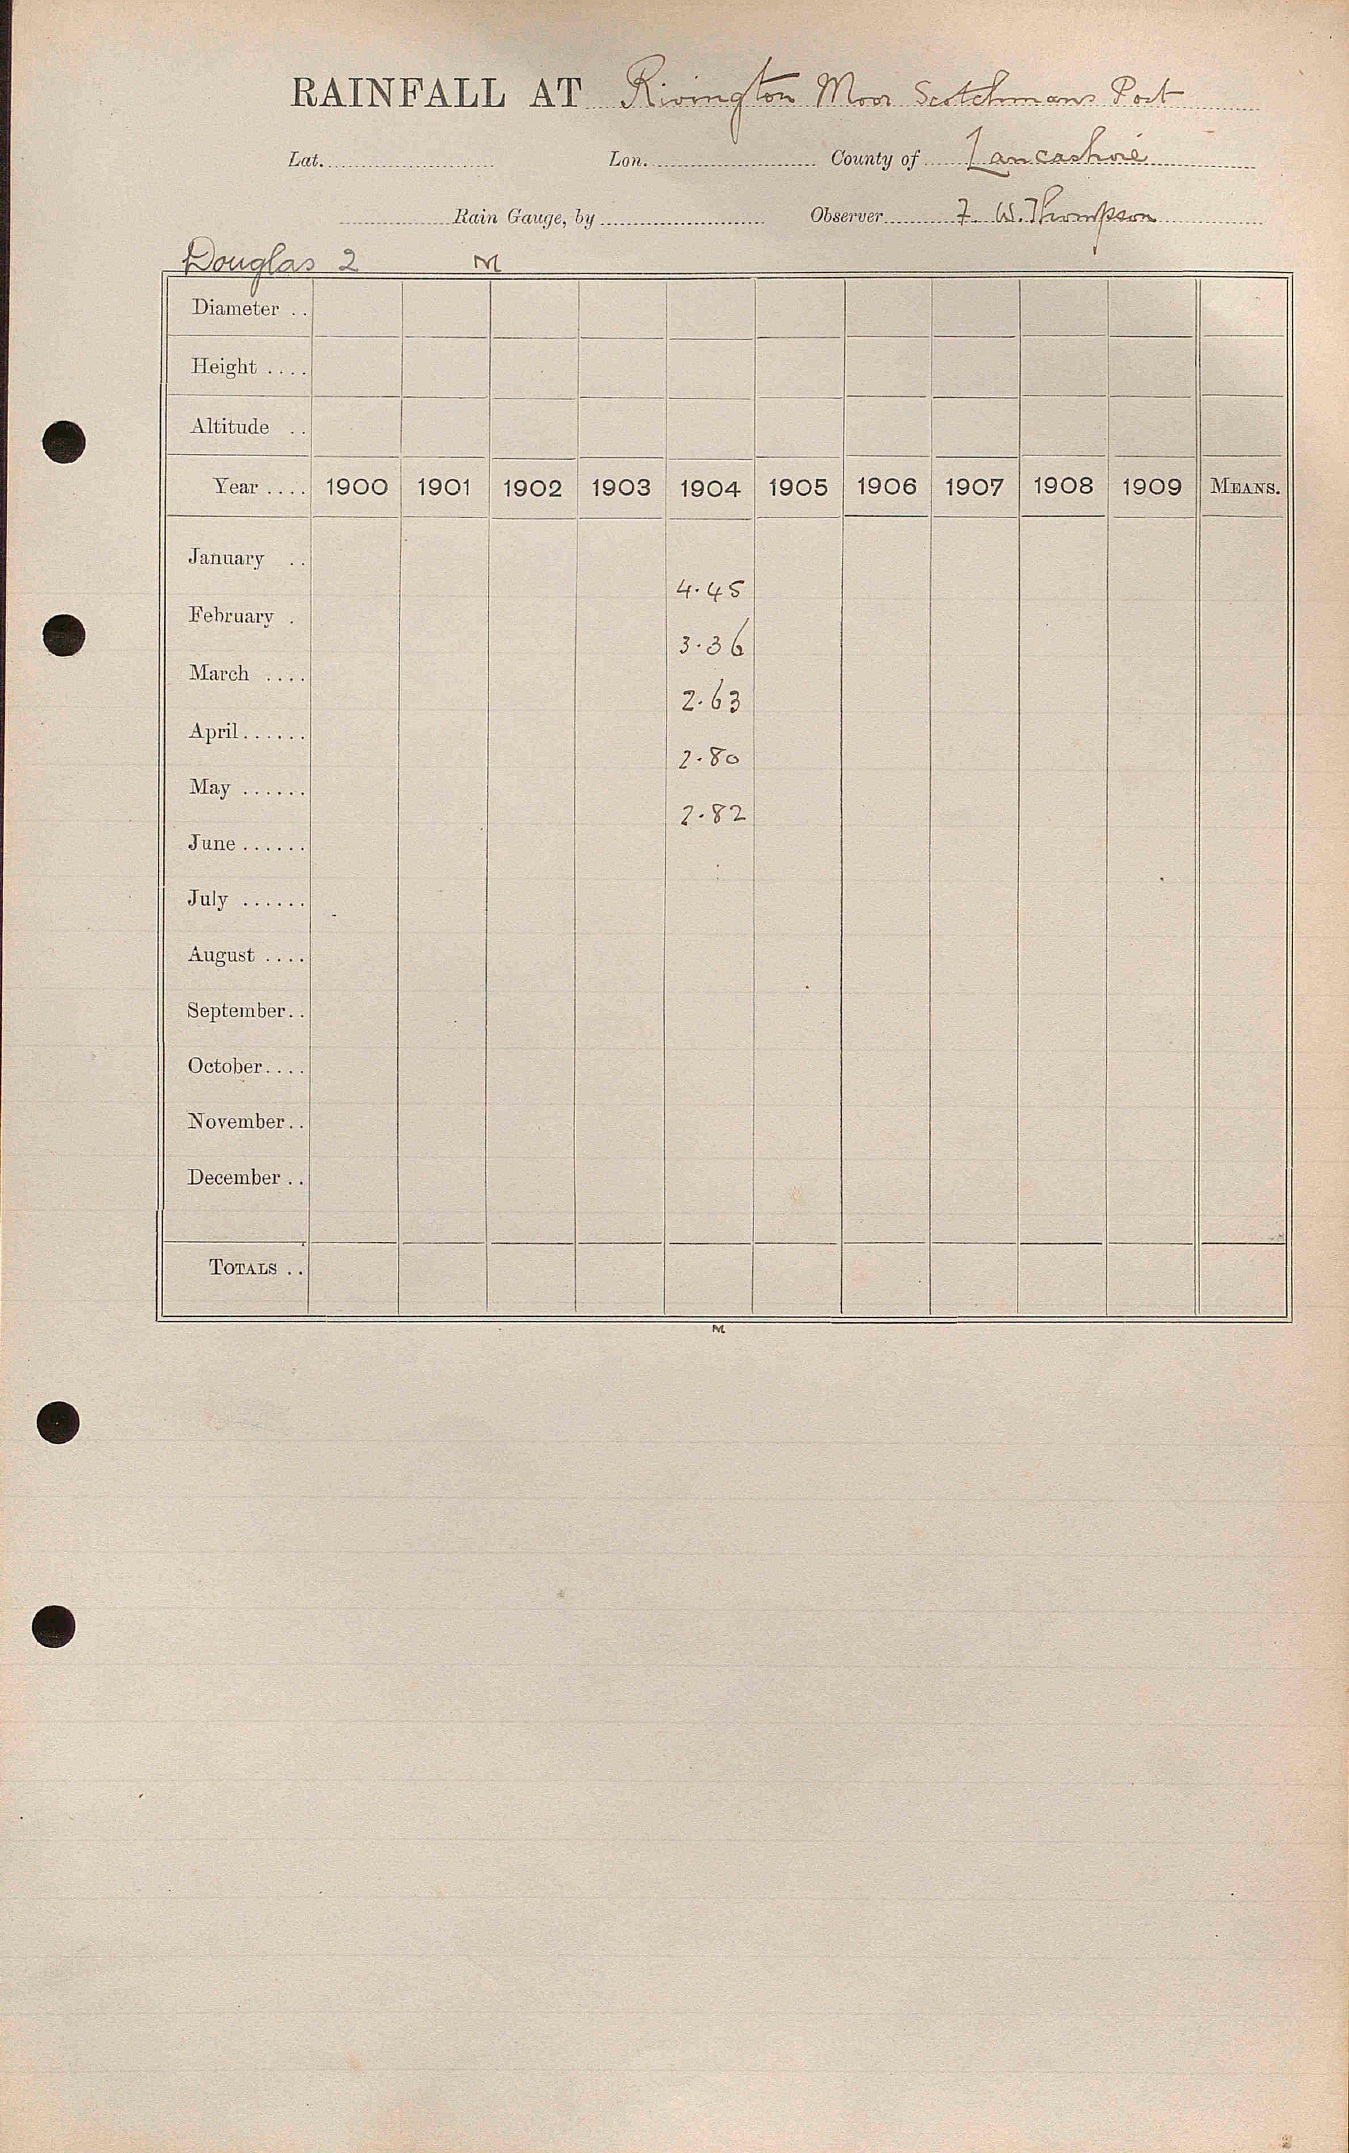 RAINFALL AT Rivington Moor Scotchmans Post
Lat. Lon. County of Lancashire
Rain Gauge, by Observer F. W. Thompson
Douglas 2 M
Diameter ..
Height ....
Altitude ..
Year .... 1900 1901 1902 1903 1904 1905 1906 1907 1908 1909 MEANS.
January ..
4.45
February .
3.36
March ....
2.63
April......
2.80
May ......
2.82
June ......
July ......
August ....
September..
October....
November..
December ..
TOTALS ..
M